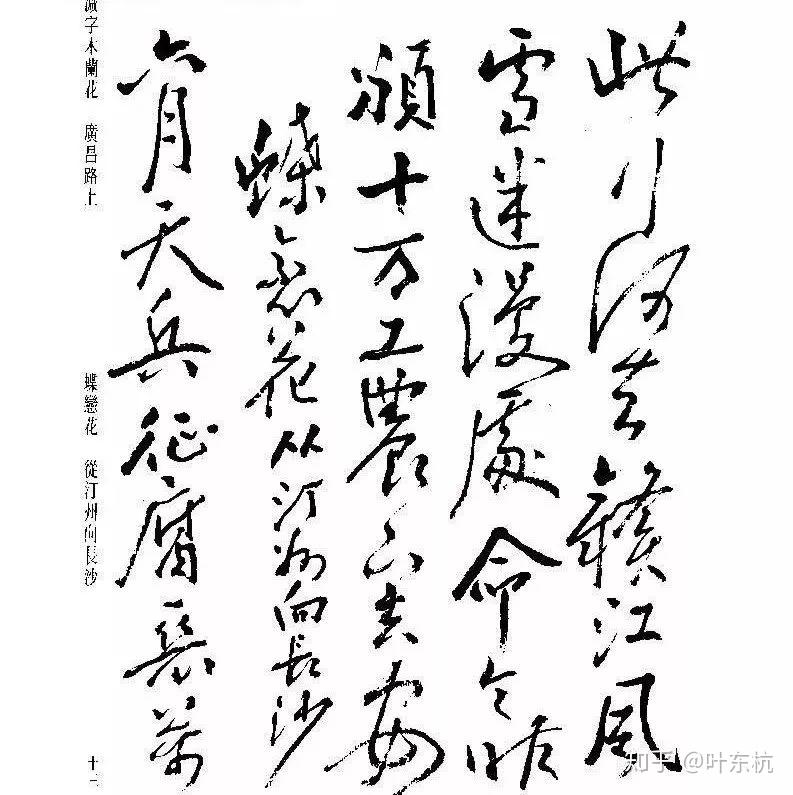 此行何去贛江風
雪迷漫處命令昨
頒十万工農下吉安
蝶恋花从汀州向長沙
六月天兵征腐惡萬
減字木蘭花 廣昌路上
蝶戀花 從汀州向長沙
知乎 @叶东杭